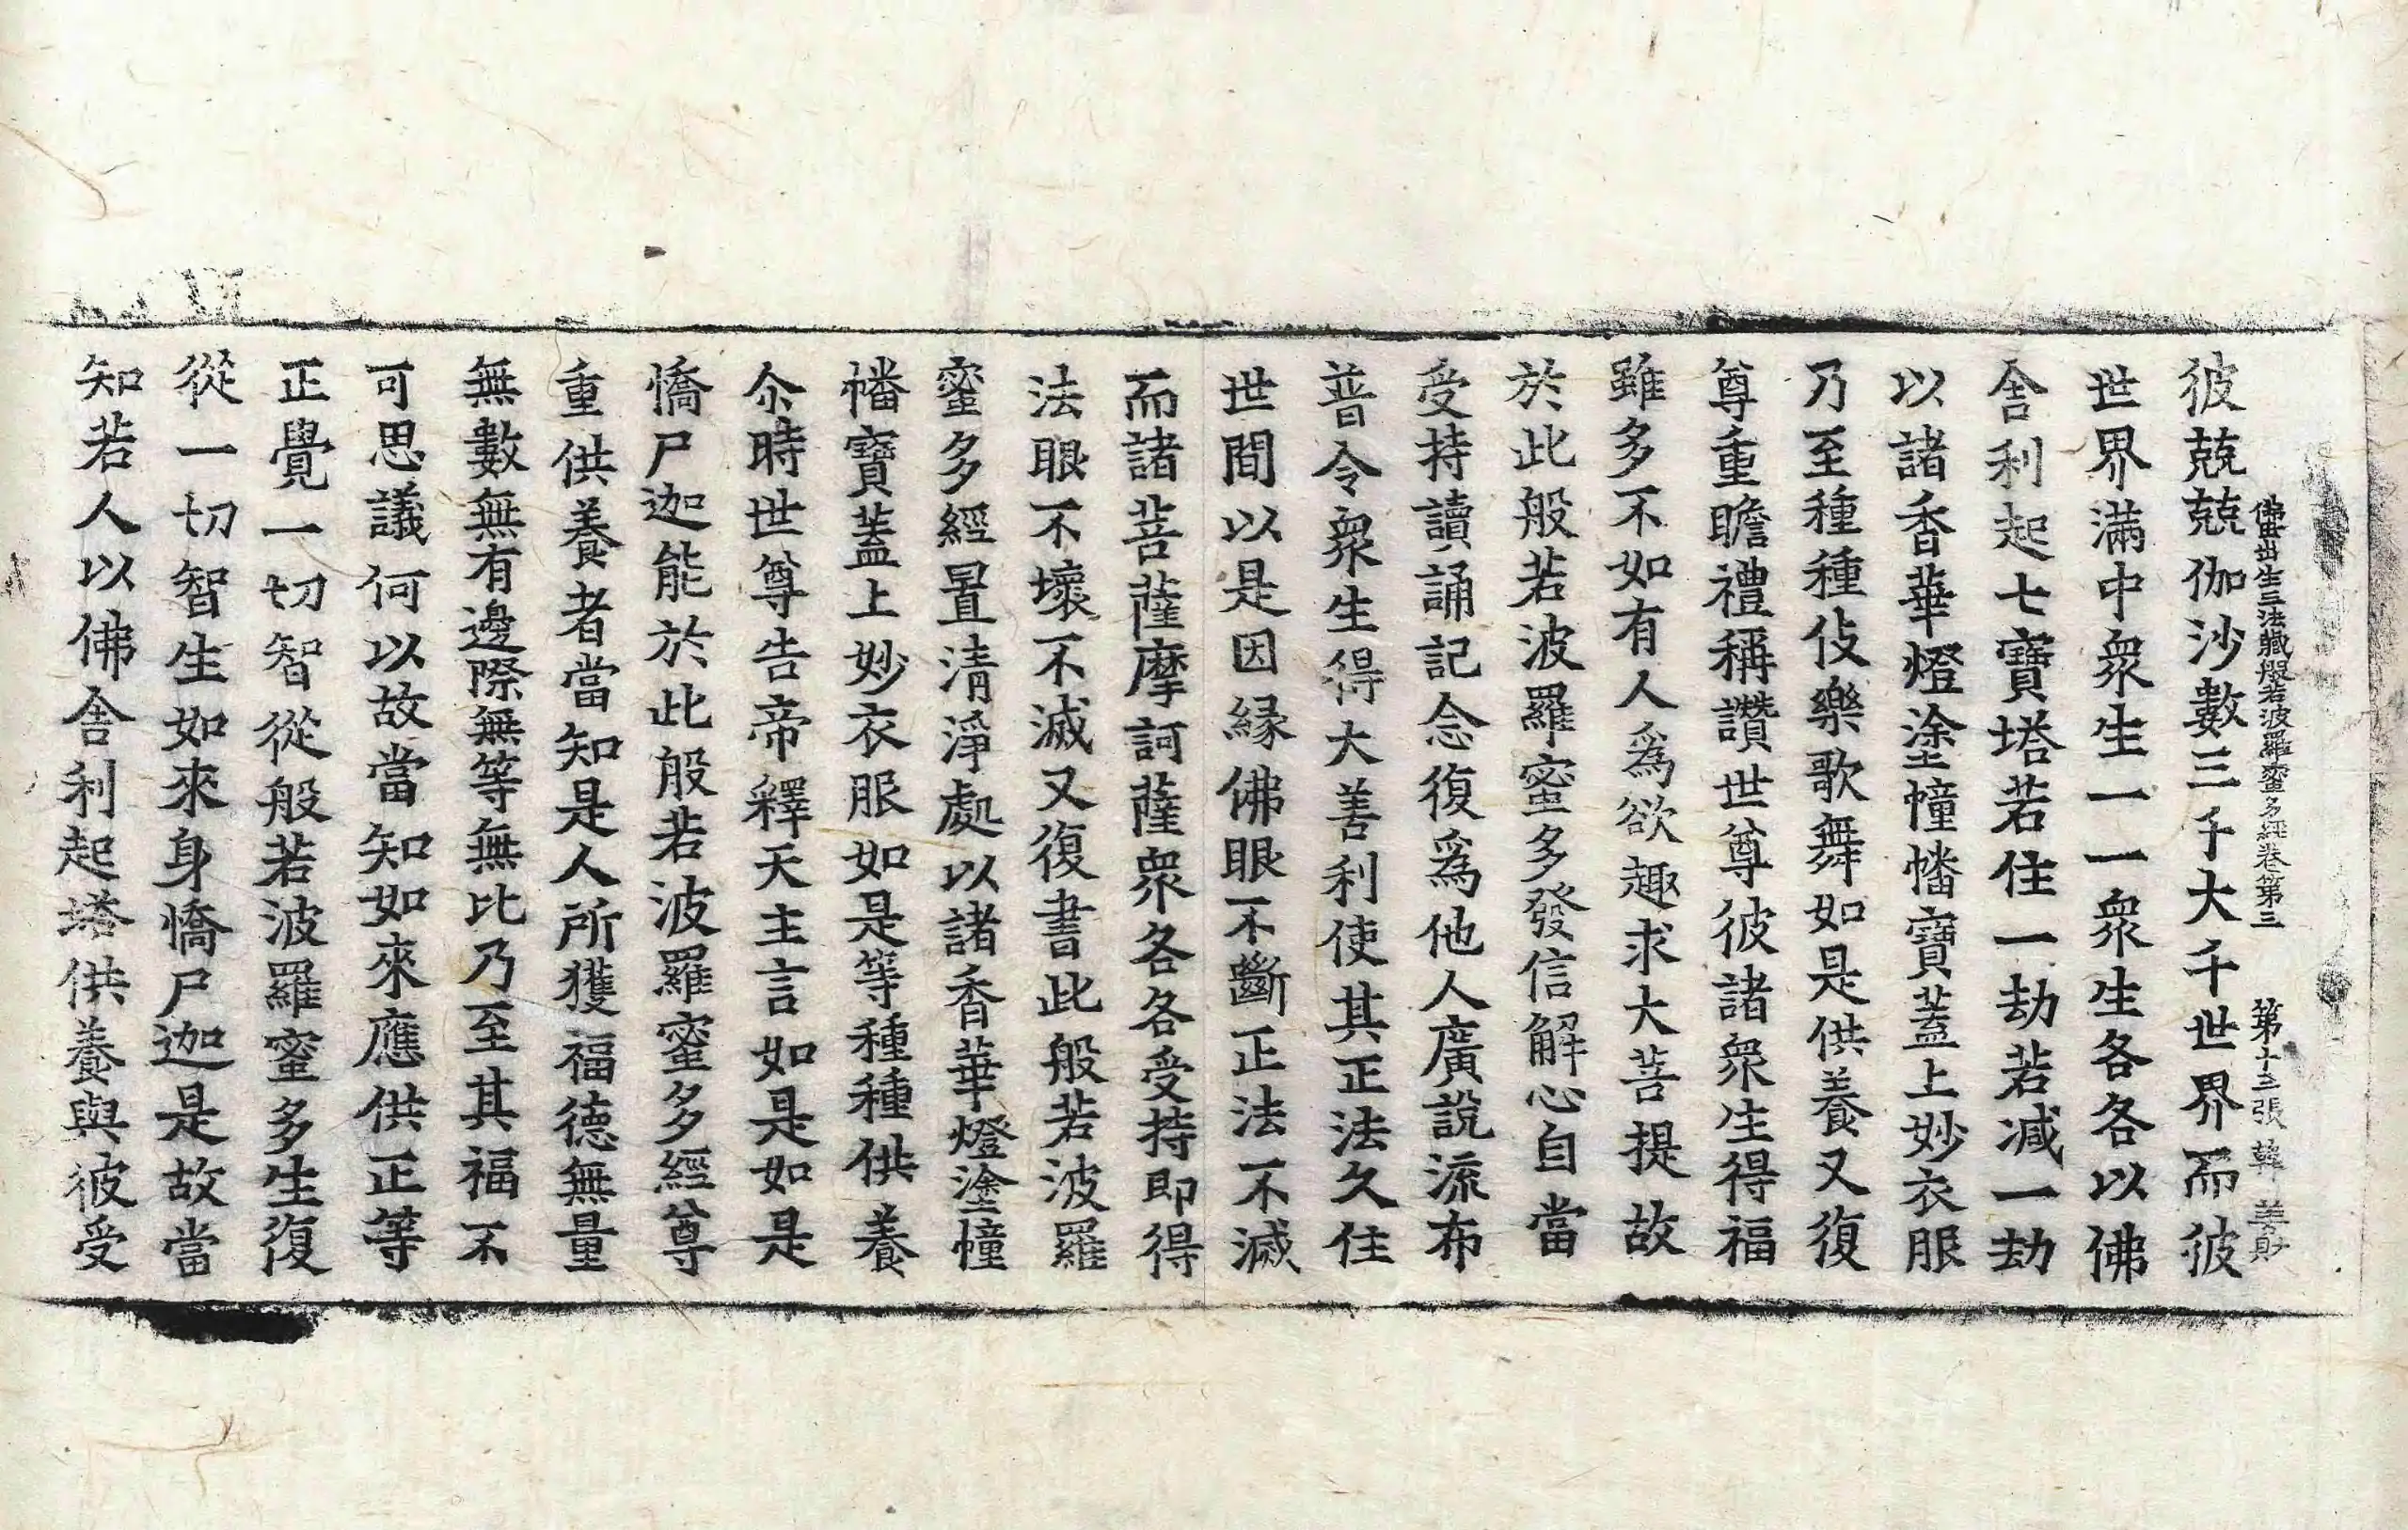 佛母出生三法藏般若波羅蜜多經卷第三 第十三張 韓 善財
彼兢兢伽沙數三千大千世界而彼
世界滿中衆生一一衆生各各以佛
舍利起七寶塔若住一劫若減一劫
以諸香華燈塗幢幡寶蓋上妙衣服
乃至種種伎樂歌舞如是供養又復
尊重瞻禮稱讚世尊彼諸衆生得福
雖多不如有人爲欲趣求大菩提故
於此般若波羅蜜多發信解心自當
受持讀誦記念復爲他人廣說流布
普令衆生得大善利使其正法久住
世間以是因緣佛眼不斷正法不滅
而諸菩薩摩訶薩衆各各受持即得
法眼不壞不滅又復書此般若波羅
蜜多經置清淨處以諸香華燈塗幢
幡寶蓋上妙衣服如是等種種供養
尒時世尊告帝釋天主言如是如是
憍尸迦能於此般若波羅蜜多經尊
重供養者當知是人所獲福德無量
無數無有邊際無等無比乃至其福不
可思議何以故當知如來應供正等
正覺一切智從般若波羅蜜多生復
從一切智生如來身憍尸迦是故當
知若人以佛舍利起塔供養與彼受